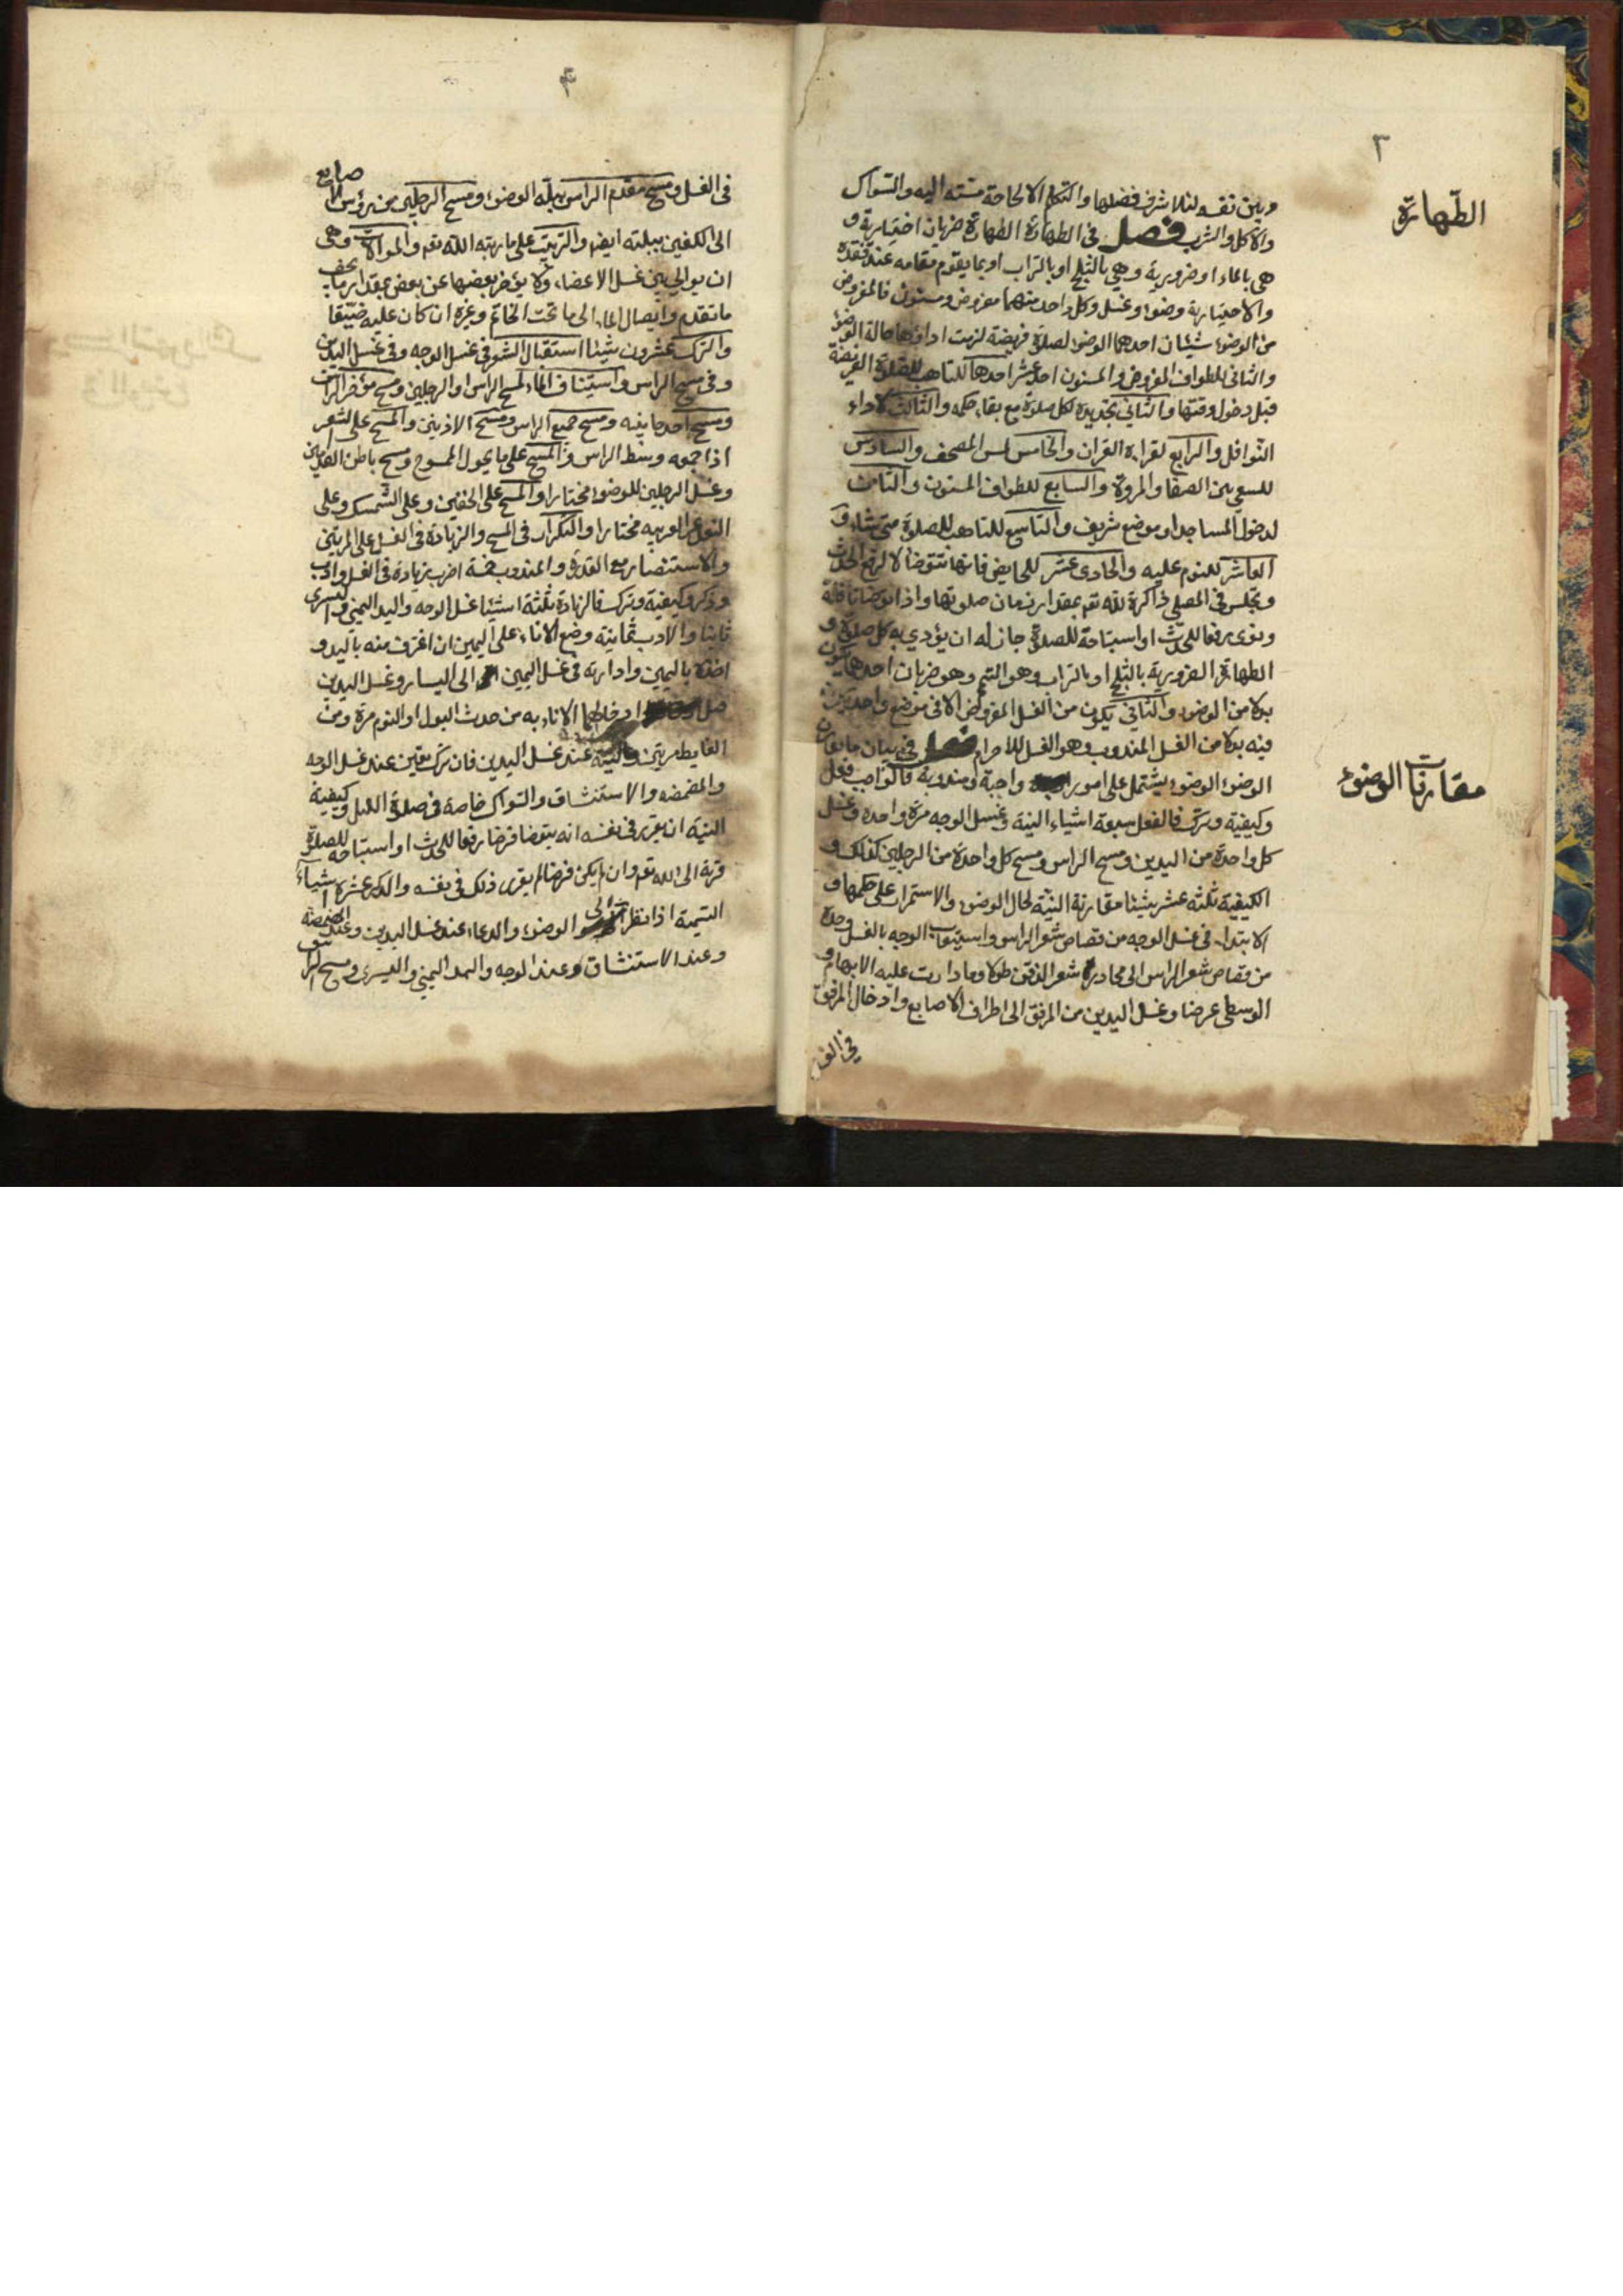 ٣
الطهارة
وبين نفسه لئلا شرف فضلها والتكلم الا لحاجة مسته اليه والسواك
والاكل والشرب فصل فى الطهارة الطهارة ضربان اختيارية و
هى بالماء او ضرورية وهي بالثلج او بالتراب او بما يقوم مقامه عند فقده
والاختيارية وضوء وغسل وكل واحد منهما مفروض ومسنون فالمفروض
من الوضوء شيئان احدهما الوضوء لصلوة فريضة لزمت اداؤها حالة الوضوء
والثانى للطواف المفروض والمسنون احد عشر احدها للتاهب للصلوة الفريضة
قبل دخول وقتها والثاني تجديده لكل صلوة مع بقاء حكمه والثالث لاداء
النوافل والرابع لقراءة القران والخامس لمس المصحف والسادس
للسعي بين الصفا والمروة والسابع للطواف المسنون والثامن
لدخول المساجد او موضع شريف والتاسع للتاهب للصلوة متى شاء و
العاشر للنوم عليه والحادى عشر للحايض فانها تتوضا لا لرفع الحدث
وتجلس في المصلى ذاكرة لله تعم بمقدار زمان صلوتها واذا توضا نافلة
ونوى رفعا للحدث او استباحة للصلوة جاز له ان يؤدي به كل صلوة و
الطهارة الضرورية بالثلج او بالتراب وهو التيمم وهو ضربان احدهما يكون
بدلا من الوضوء والثاني يكون من الغسل المفروض الا فى موضع واحد يكون
فيه بدلا من الغسل المندوب وهو الغسل للاحرام فصل في بيان ما يقارن
مقارنات الوضوء
الوضوء الوضوء يشتمل على امور واجبة ومندوبة فالواجب فعل
وكيفية وترك فالفعل سبعة اشياء النية وغسل الوجه مرة واحدة وغسل
كل واحدة من اليدين ومسح الراس ومسح كل واحدة من الرجلين كذلك و
الكيفية ثلثه عشر شيئا مقارنة النية لحال الوضوء والاستمرار على حكمها و
الابتداء فى غسل الوجه من قصاص شعر الراس واستيعاب الوجه بالغسل وحده
من قصاص شعر الراس الى محادر شعر الذقن طولا وما دارت عليه الابهام و
الوسطى عرضا وغسل اليدين من المرفق الى اطراف الاصابع وادخال المرفق
في الغسل
فى الغسل ومسح مقدم الراس ببلة الوضوء ومسح الرجلين من رؤس الاصابع
الى الكعبين ببلته ايضا والترتيب على ما رتبه الله تعم والموالاة وهى
ان يوالي بين غسل الاعضاء ولا يؤخر بعضها عن بعض بمقدار ما يجف
ما تقدم وايصال الماء الى ما تحت الخاتم وغيره ان كان عليه ضيقا
والترك عشرون شيئا استقبال الشعر فى غسل الوجه وفى غسل اليدين
وفى مسح الراس واستيناف الماء لمسح الراس او الرجلين ومسح مؤخر الراس
ومسح احد جانبيه ومسح جميع الراس ومسح الاذنين والمسح على الشعر
اذا جمعه وسط الراس والمسح على ما يحول الممسوح ومسح باطن القدمين
وغسل الرجلين للوضوء مختارا والمسح على الخفين وعلى الشمسك وعلى
النعل غير العربيه مختارا والتكرار فى المسح والزيادة فى الغسل على المرتين
والاستنصار مع القدرة والمندوب خمسة اضرب زيادة فى الغسل وادب
وذكر وكيفية وترك فالزيادة ثلثة اشيئا غسل الوجه واليد اليمنى واليسرى
ثانيا والادب ثمانية وضع الاناء على اليمين ان اغترف منه باليد و
اخذه باليمين وادارته فى غسل اليمين الى اليسار وغسل اليدين
قبل ادخالهما الاناء به من حدث البول او النوم مرة ومن
الغايط مرتين والنية عند غسل اليدين فان ترك تعين عند غسل الوجه
والمضمضه والاستنشاق والسواك خاصة فى صلوة الليل وكيفية
النية ان يقرر فى نفسه انه يتوضا فرضا رفعا للحدث او استباحه للصلوة
قربة الى الله تعم وان لم يكن فرضا لم يقرر ذلك فى نفسه والذكر عشرة اشياء
التسمية اذا نظر الى الوضوء والدعاء عند غسل اليدين وعند المضمضة
وعند الاستنشاق وعند الوجه واليد اليمنى واليسرى ومسح الراس